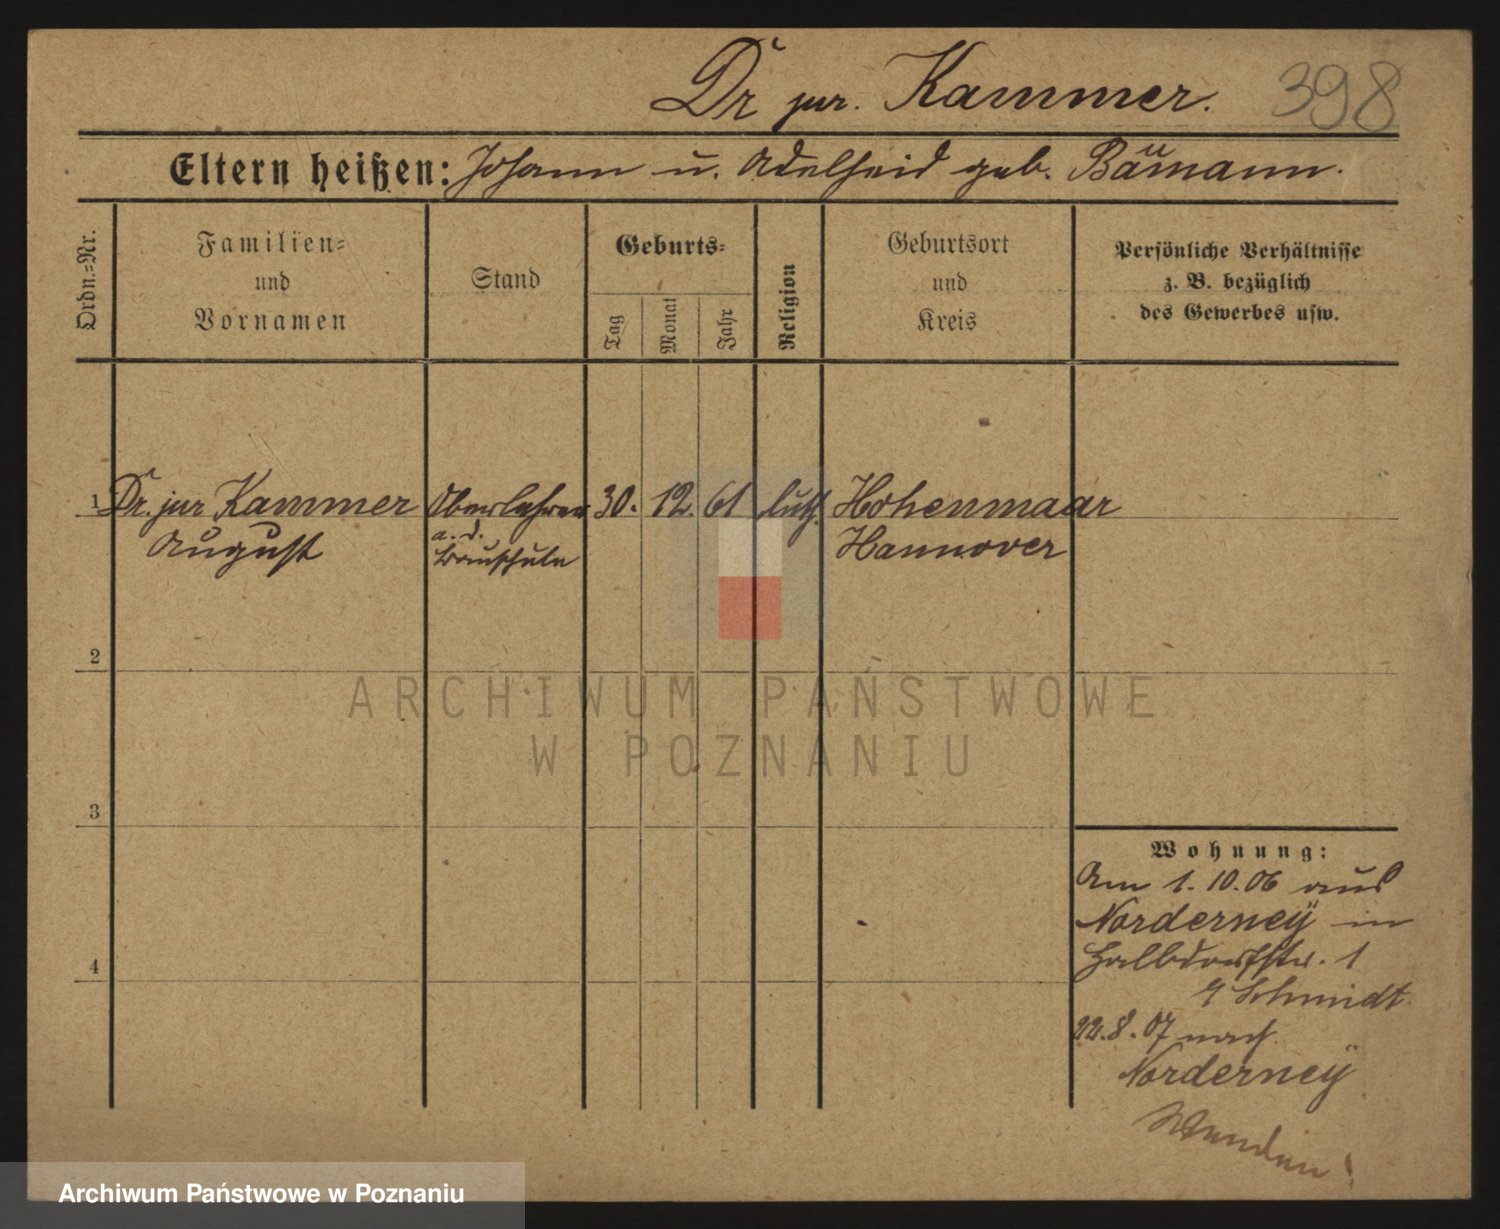 Dr jur. Kammer. 398
Eltern heißen: Johann u. Adelheid geb. Bäumann.
Ordn.=Nr.
Familien=
und
Vornamen
Stand
Geburts=
Tag
Monat
Jahr
Religion
Geburtsort
und
Kreis
Persönliche Verhältnisse
z. B. bezüglich
des Gewerbes usw.
1 Dr. jur Kammer Oberlehrer 30. 12. 61 luth. Hohenmaar
August a. d. Hannover
Bauschule
2
ARCHIWUM PAŃSTWOWE
W POZNANIU
3
Wohnung:
Am 1. 10. 06 aus
Norderney in
Halbdorfstr. 1
Schmidt
4
22. 8. 07 nach
Norderney
Wenden!
Archiwum Państwowe w Poznaniu